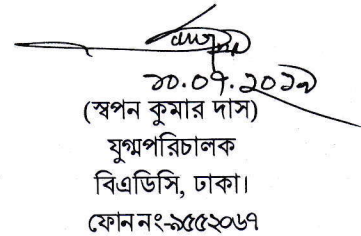 ১০.০৭.২০১৯
(স্বপন কুমার দাস)
যুগ্মপরিচালক
বিএডিসি, ঢাকা।
ফোন নং-৯৫৫২০৬৭